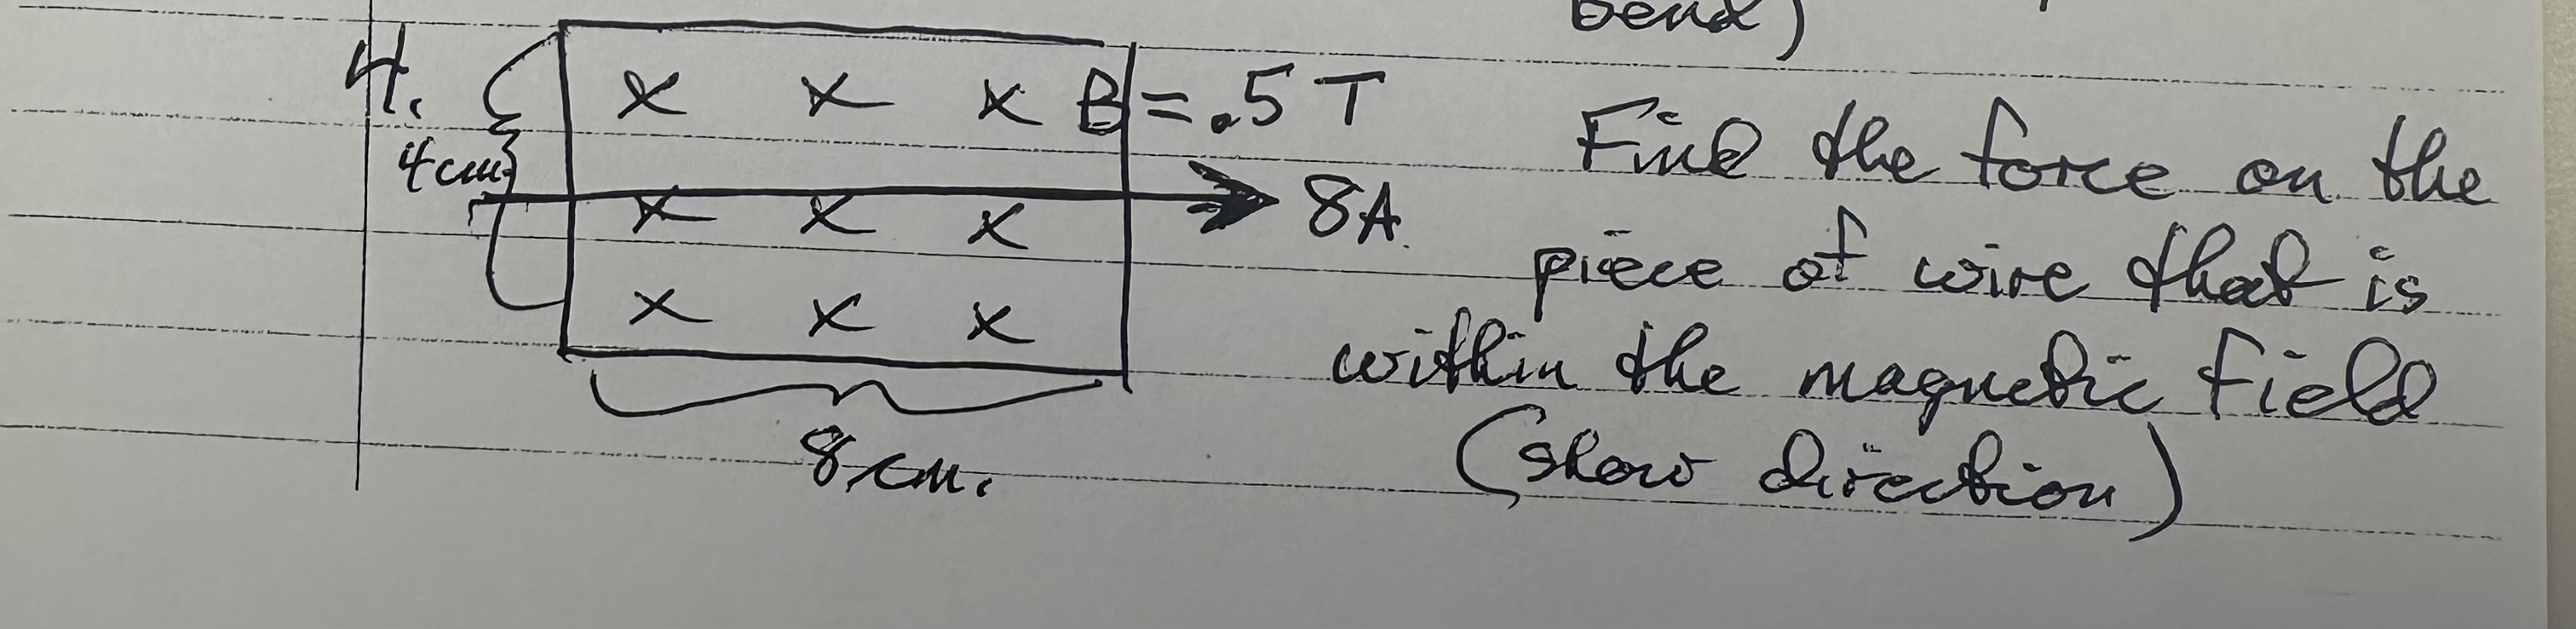 bend)
4.
x x x B = .5 T
4cm
x x x
8A
x x x
8cm.
Find the force on the
piece of wire that is
within the magnetic field
(show direction)